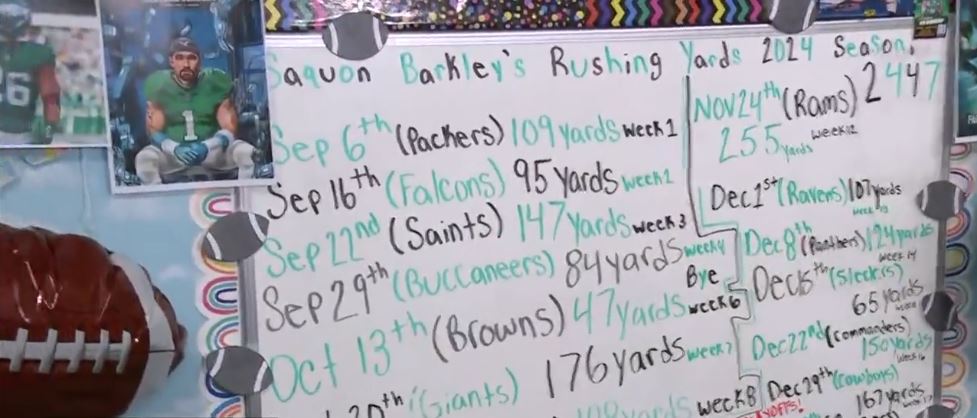 Saquon Barkley's Rushing Yards 2024 Season.
2447
Sep 6th (Packers) 109 yards week 1
Sep 16th (Falcons) 95 yards week 2
Sep 22nd (Saints) 147 yards week 3
Sep 29th (Buccaneers) 84 yards week 4
Bye
Oct 13th (Browns) 47 yards week 6
20th (Giants) 176 yards week 7
week 8
Nov 24th (Rams)
255 yards week 12
Dec 1st (Ravens) 107 yards
week 13
Dec 8th (Panthers) 124 yards
week 14
Dec 15th (Steelers)
65 yards
Dec 22nd (commanders)
150 yards
week 16
Dec 29th (cowboys)
167 yards
26
1